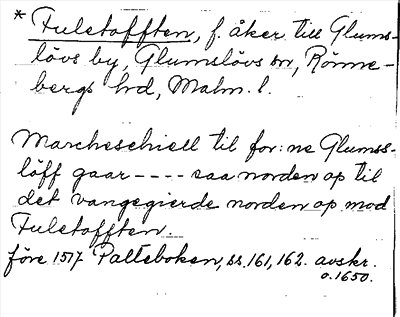 * Fuletofften, f. åker till Glums-
lövs by, Glumslövs sn, Rönne-
bergs hd, Malm. l.
Marcheschiell til for:ne Glumss-
löff gaar - - - - saa norden op til
det vangegierde norden op mod
Fuletofften.
före 1517 Palteboken, ss. 161, 162. avskr.
o. 1650.